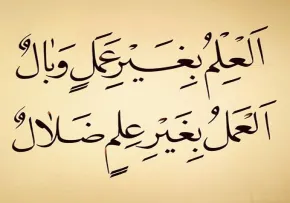 اَلْعِلْمُ بِغَيْرِ عَمَلٍ وَبَالٌ
اَلْعَمَلُ بِغَيْرِ عِلِمٍ ضَلَالٌ